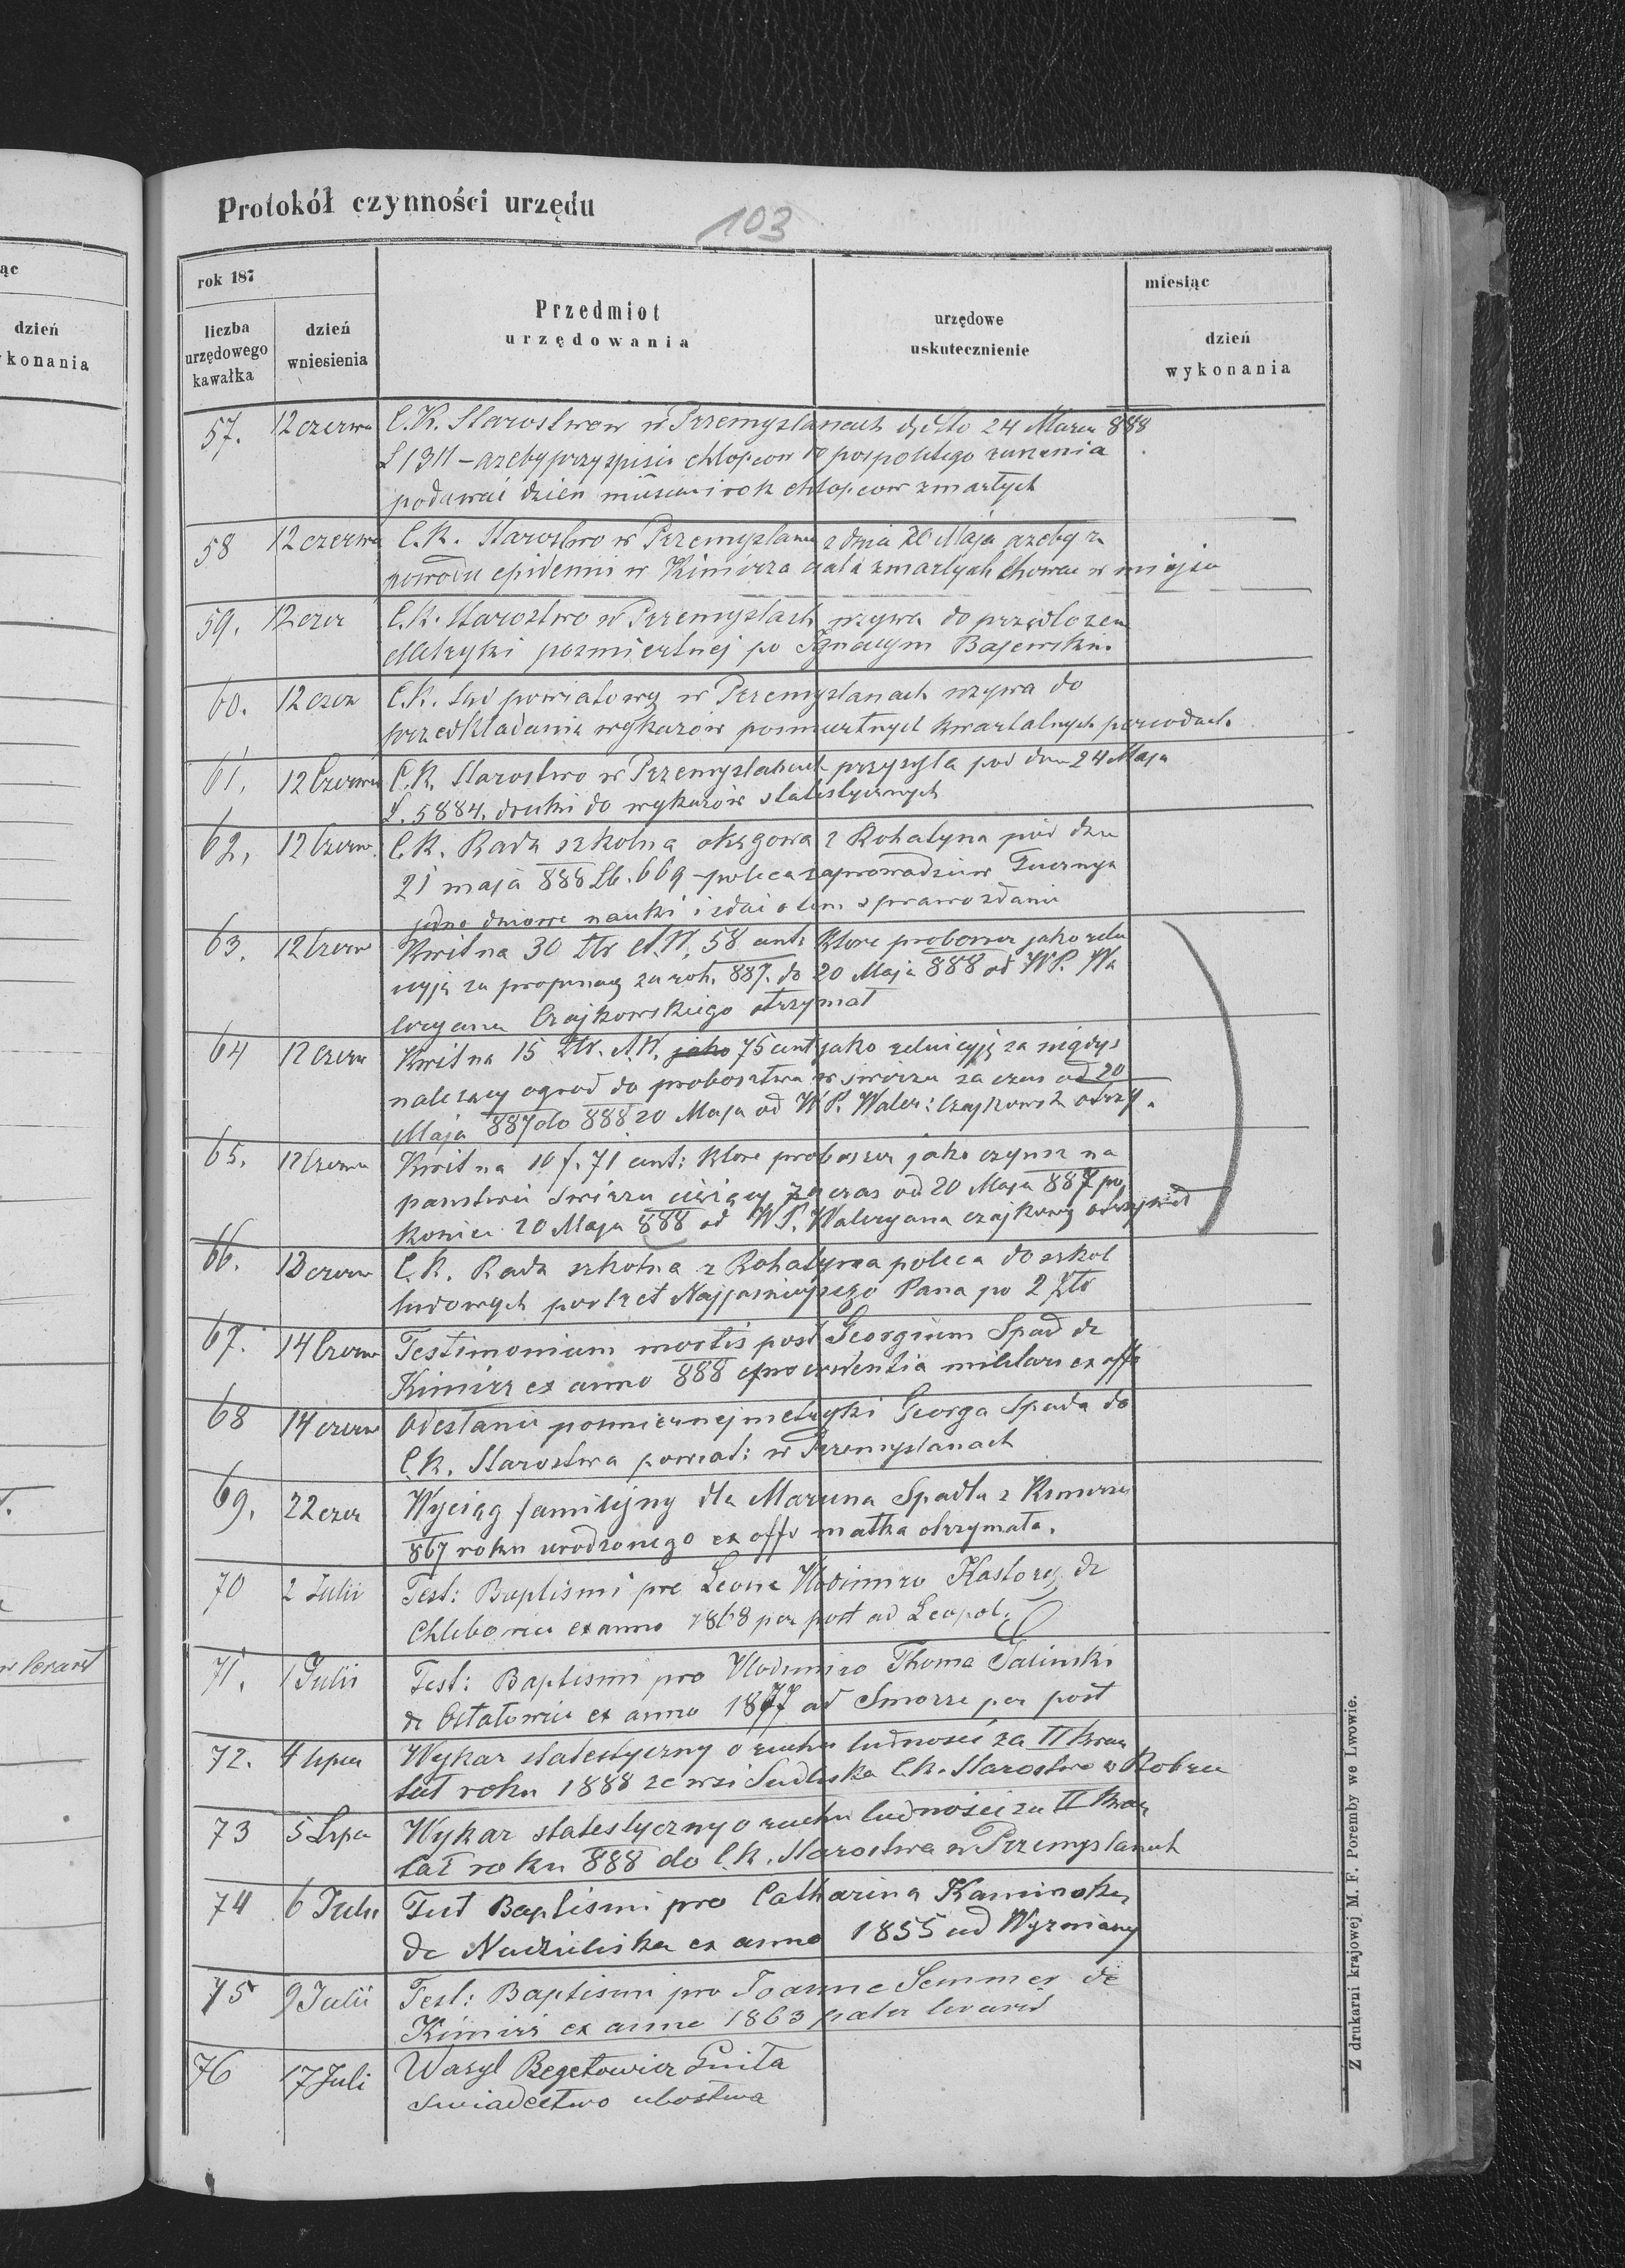 Protokół czynności urzędu
103
rok 187
miesiąc
liczba urzędowego kawałka
dzień wniesienia
Przedmiot urzędowania
urzędowe uskutecznienie
dzień wykonania
57. 12 czerwca C.K. Starostwow w Przemyslanach 24 Marca 888
L 1311 - azeby przy spisie chlopcow do pospolitego
podawać dzien miesiac i rok chlopcow zmarłych
58 12 czerwca C.K. Starostwo w Przemyslanach z dnia Maja azeby z
powodu epidemii w Kimirza ciała zmarłych chowac w
59. 12 czer C.K. Starostwo w Przemyslach wzywa do przedlozen
Metryki pozmiertnej po Ignacym Bajewskim
60. 12 czer C.K. Sąd powiatowy w Przemyslanach wzywa do
przedkladania wykazów posmiertnych kwartalnych
61. 12 Czerwca C.K. Starostwo w Przemyslanach przysyła pod dn 24 Maja
L. 5884. druki do wykazów statistycznych
62. 12 Czerw C.K. Rada szkolna okręgowa z Rohatyna pod dn
21 maja 888 Lb. 669 - poleca zaprowadzić w
jedno dniowe nauki i zdać o tem sprawozdanie
63. 12 Czerw Kwit na 30 złr A.W. 58 cent: Ktore proboszcz jako relu
za propinacy za rok. 887. do 20 Maja 888 od WP. Wa
leryana Czajkowskiego otrzymał
64 12 Czerw Kwit na 15 złr. A.W. jako 75 cent jako reluicyję za nigdys
nalezacy ogrod do probostwa w swirzu za czas od 20
Maja 887 do 888 20 Maja od W.P. Waler: Czajkowsk otrzy.
65. 12 Czerw Kwit na 10 f. 71 cent: Ktore proboszcz jako czynsz na
panstwie Swirzu za czas od 20 Maja 887 po
koniec 20 Maja 888 od WP. Waleryana czajkows otrzymał
66. 13 czerw C.K. Rada szkolna z Rohatyna poleca do szkol
ludowych portret Najjasniejszego Pana po 2 złr
67. 14 Czerw Testimonium mortis post Georgium Spad de
Kimirz ex anno 888 pro evidentia militari ex offo
68 14 czerw Odesłanie posmiernej metryki Georga Spada do
C.K. Starostwa powiat: w Przemyslanach
69. 22 czer Wyciąg familijny dla Marcina Spadla z Kimirza
867 roku urodzonego ex offo matka otrzymała.
70 2 Julii Test: Baptismi pro Leone Wlodimiro Kastory de
Chlebowice ex anno 1868 per post ad Leopol:
71. 1 Julii Test: Baptismi pro Wlodimiro Thoma Salinski
de Ostałowice ex anno 1877 ad Smorze per post
72. 4 lipca Wykaz statestyczny o ruchu ludnosci za II kwar
tał roku 1888 ze wsi C.K. Starostwo w Bobrce
73 5 Lipca Wykaz statestyczny o ruchu ludności za II kwar
tał roku 888 do C.K. Starostwa w Przemyslanach
74 6 Julii Test Baptismi pro Catharina Kaminska
de ex anno 1855 ad Wyzniany
75 9 Julii Test: Baptismi pro Joanne Semmer de
Kimirz ex anno 1863 pater levavit
76 17 Juli Wasyl Begetowicz Gniła
Swiadectwo ubostwa
Z drukarni krajowej M. F. Poremby we Lwowie.
ąc
dzień
konania